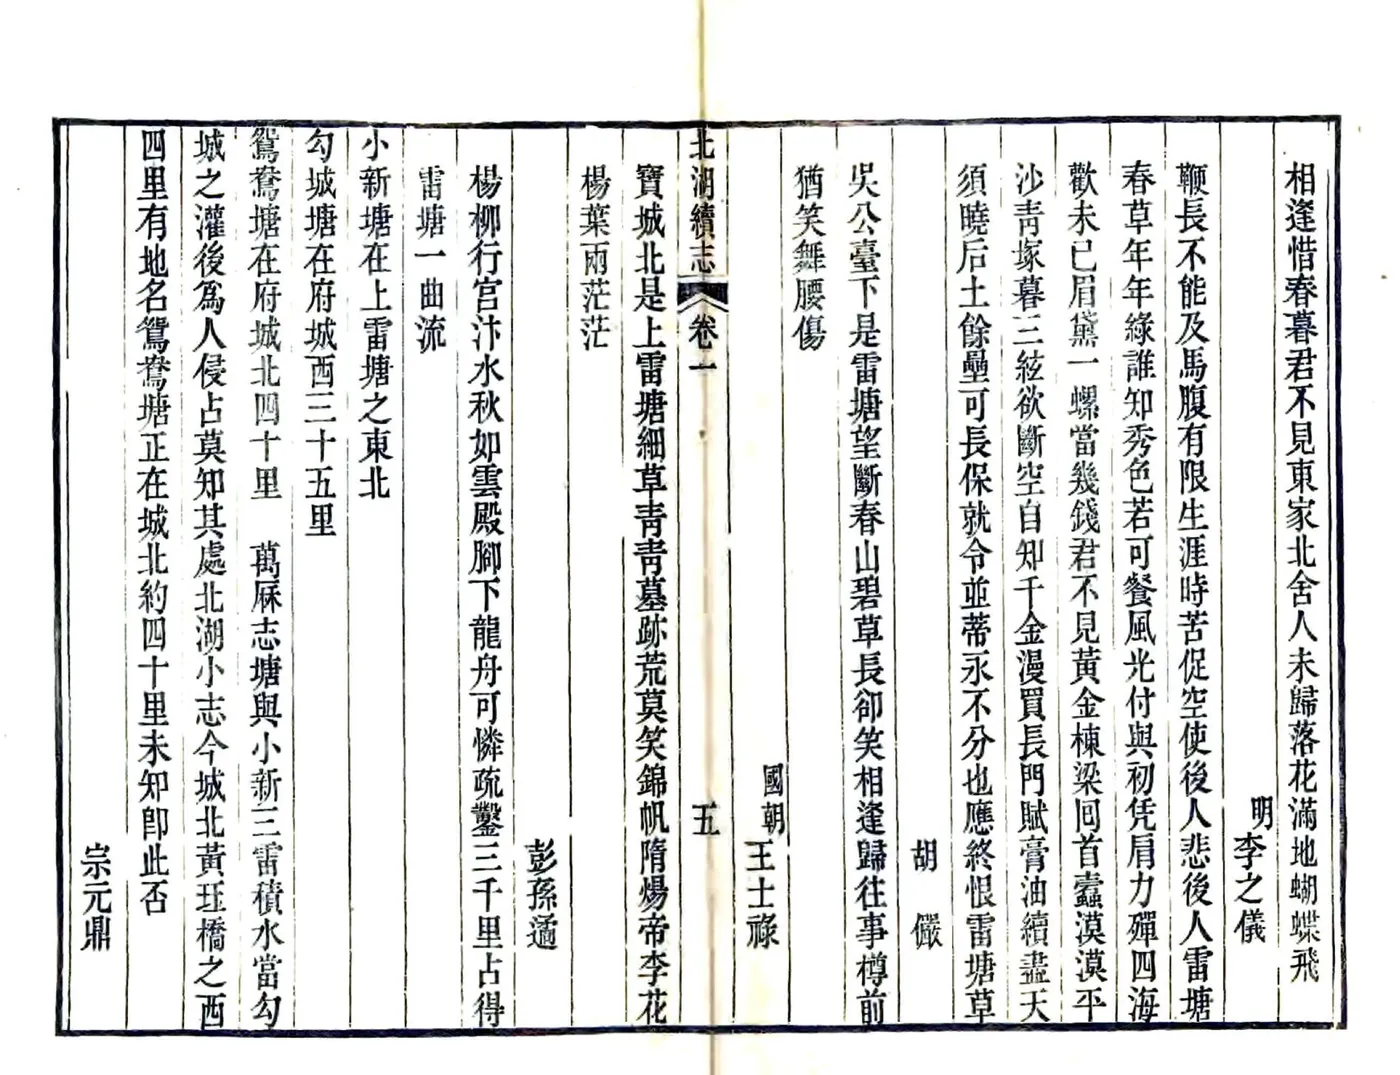 相逢惜春暮君不見東家北舍人未歸落花滿地蝴蝶飛
明李之儀
鞭長不能及馬腹有限生涯時苦促空使後人悲後人雷塘
春草年年綠誰知秀色若可餐風光付與初凭肩力殫四海
歡未已眉黛一螺當幾錢君不見黃金棟梁回首蠹漠漠平
沙靑塚暮三絃欲斷空自知千金漫買長門賦膏油續盡天
須曉后土餘壘可長保就令並蒂永不分也應終恨雷塘草
胡儼
吳公臺下是雷塘望斷春山碧草長卻笑相逢歸往事樽前
猶笑舞腰傷
國朝王士祿
北湖續志 卷一 五
寶城北是上雷塘細草靑靑墓跡荒莫笑錦帆隋煬帝李花
楊葉兩茫茫
彭孫遹
楊柳行宮汴水秋如雲殿腳下龍舟可憐疏鑿三千里占得
雷塘一曲流
小新塘在上雷塘之東北
勾城塘在府城西三十五里
鴛鴦塘在府城北四十里 萬厤志塘與小新三雷積水當勾
城之灌後爲人侵占莫知其處北湖小志今城北黃珏橋之西
四里有地名鴛鴦塘正在城北約四十里未知卽此否
宗元鼎